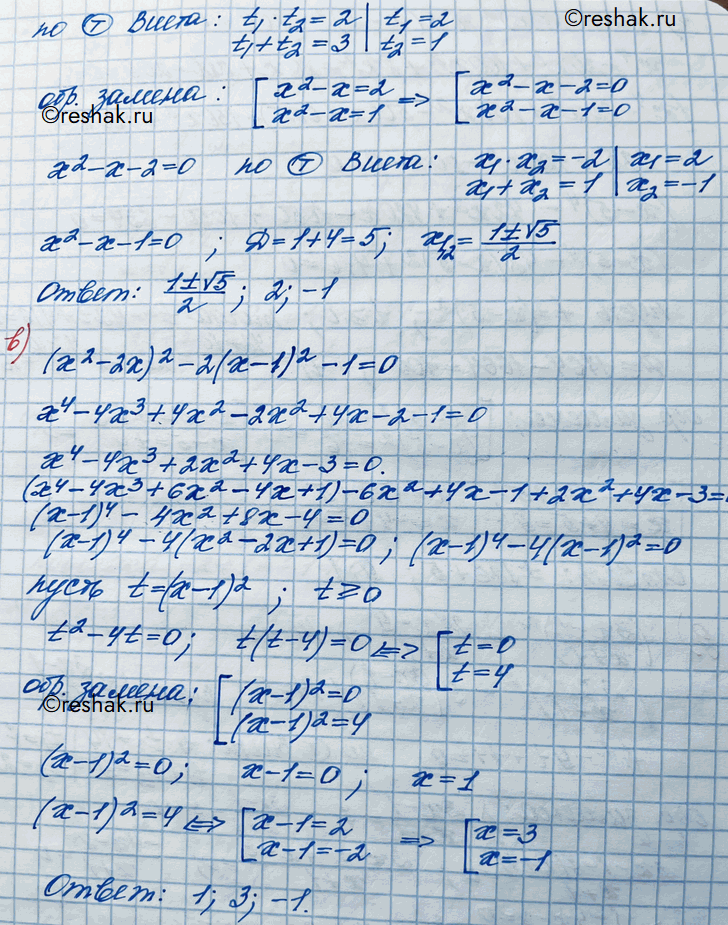 ©reshak.ru
по Ⓣ Виета: t₁·t₂=2 | t₁=2
t₁+t₂=3 | t₂=1
обр. замена: [ x²-x=2 => [ x²-x-2=0
x²-x=1 x²-x-1=0
©reshak.ru
x²-x-2=0 по Ⓣ Виета: x₁·x₂=-2 | x₁=2
x₁+x₂=1 | x₂=-1
x²-x-1=0 ; D=1+4=5; x₁,₂=(1±√5)/2
Ответ: (1±√5)/2; 2; -1
в)
(x²-2x)²-2(x-1)²-1=0
x⁴-4x³+4x²-2x²+4x-2-1=0
x⁴-4x³+2x²+4x-3=0.
(x⁴-4x³+6x²-4x+1)-6x²+4x-1+2x²+4x-3=
(x-1)⁴-4x²+8x-4=0
(x-1)⁴-4(x²-2x+1)=0; (x-1)⁴-4(x-1)²=0
пусть t=(x-1)² ; t≥0
t²-4t=0; t(t-4)=0 <=> [ t=0
t=4
обр. замена: [ (x-1)²=0
(x-1)²=4
©reshak.ru
(x-1)²=0; x-1=0; x=1
(x-1)²=4 <=> [ x-1=2 => [ x=3
x-1=-2 x=-1
Ответ: 1; 3; -1.